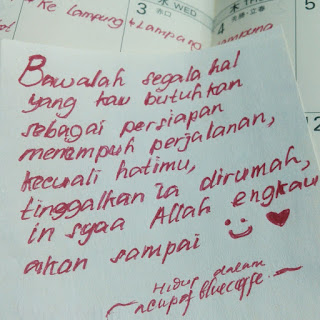 Ke Lampung
水 WED
3
赤口
Lampung
木
4
先勝・立春
12
Bawalah segala hal
yang kau butuhkan
sebagai persiapan
menempuh perjalanan,
kecuali hatimu,
tinggalkan ia dirumah,
in syaa Allah engkau
akan sampai
Hidup dalam